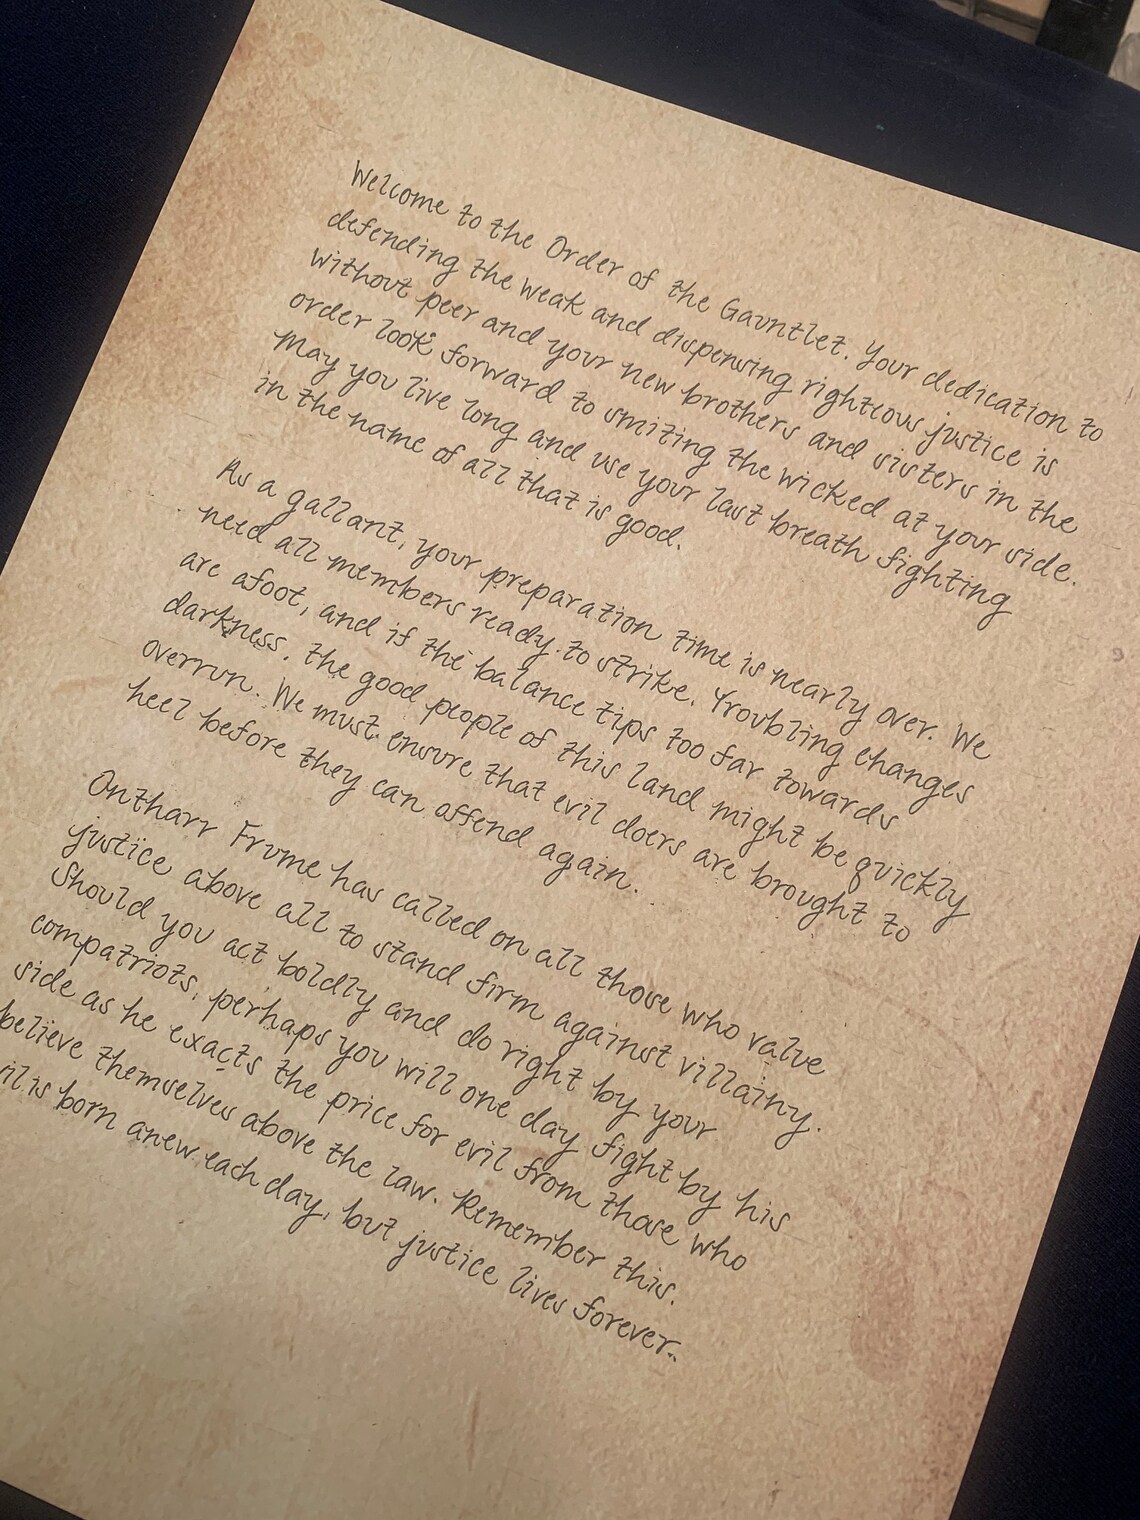 Welcome to the Order of the Gauntlet. Your dedication to
defending the weak and dispensing righteous justice is
without peer and your new brothers and sisters in the
order look forward to smiting the wicked at your side.
May you live long and use your last breath fighting
in the name of all that is good.
As a gallant, your preparation time is nearly over. We
need all members ready to strike. Troubling changes
are afoot, and if the balance tips too far towards
darkness, the good people of this land might be quickly
overrun. We must ensure that evil doers are brought to
heel before they can offend again.
Ontharr Frume has called on all those who value
justice above all to stand firm against villainy.
Should you act boldly and do right by your
compatriots, perhaps you will one day fight by his
side as he exacts the price for evil from those who
believe themselves above the law. Remember this.
il is born anew each day, but justice lives forever.